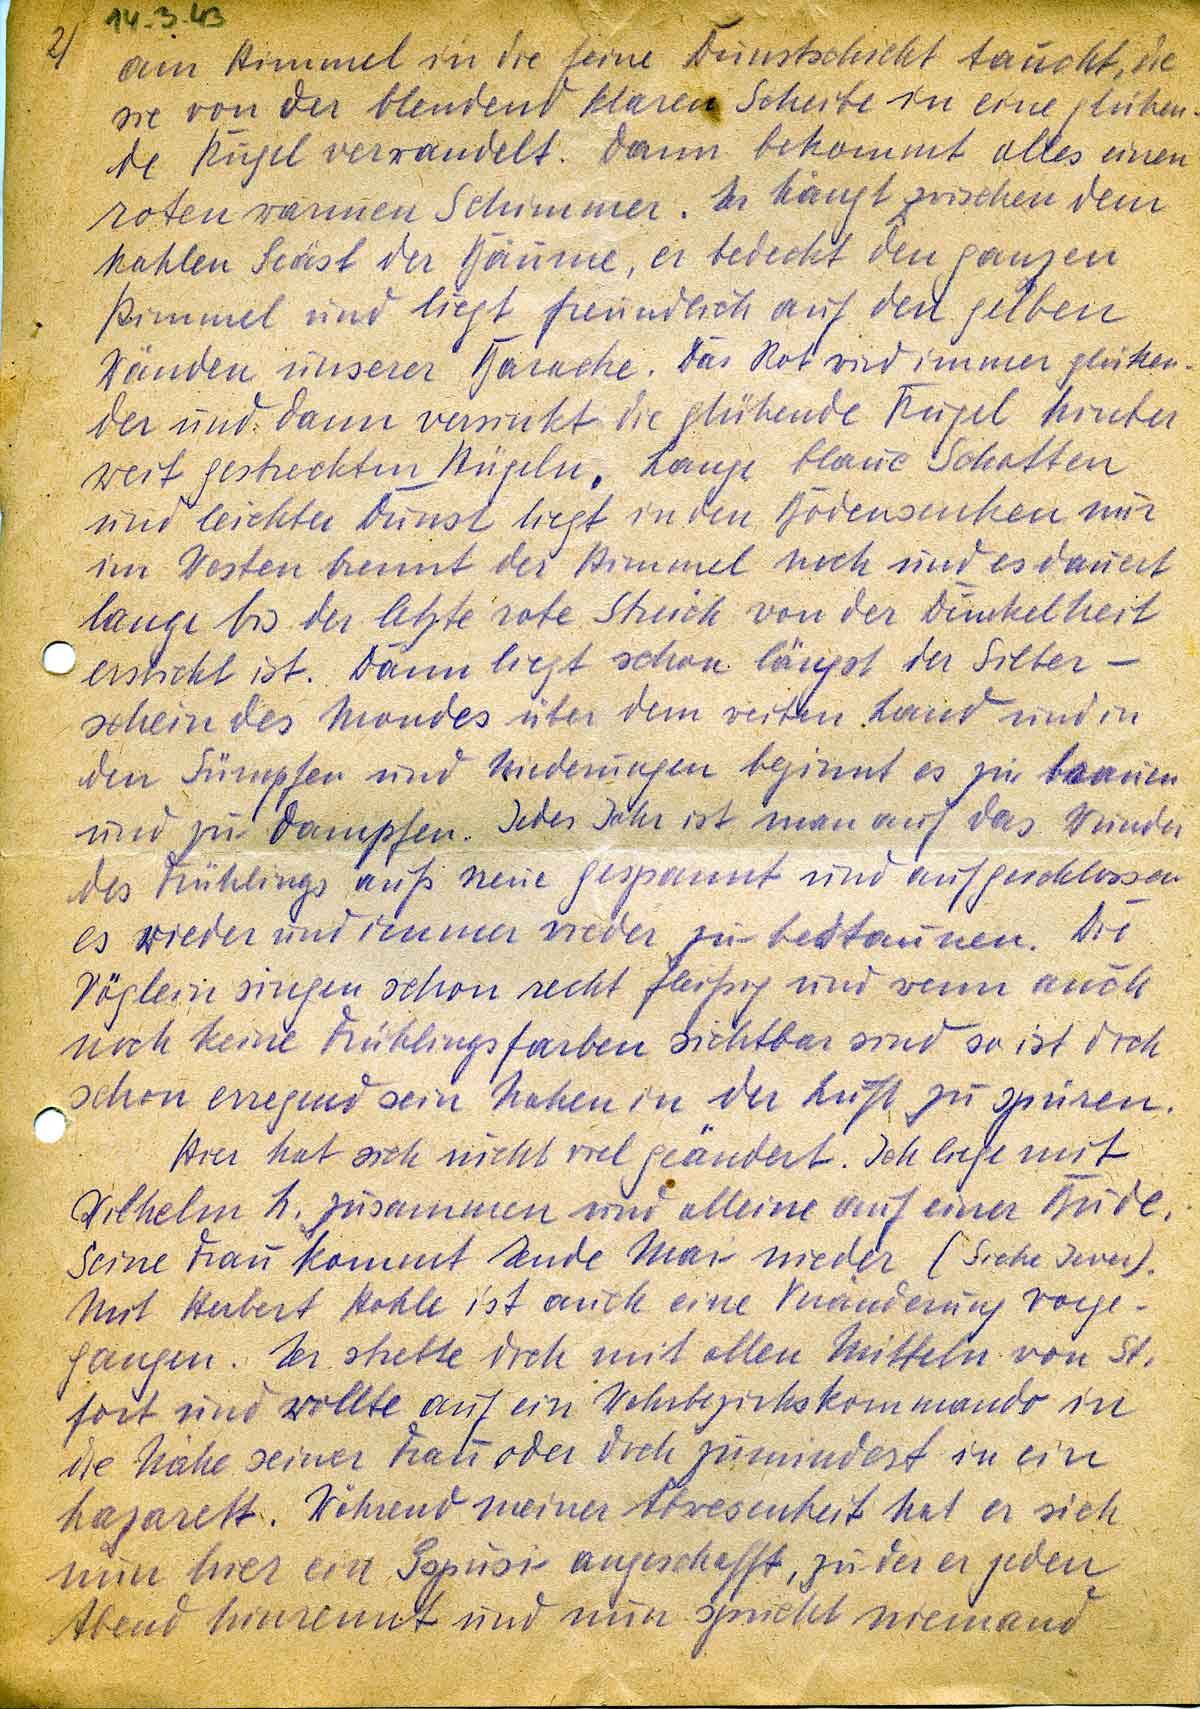 14.3.43
2/
am Himmel in die feine Dunstschicht taucht, die
sie von der blendend klaren Scheibe in eine glühen-
de Kugel verwandelt. Dann bekommt alles einen
roten warmen Schimmer. Er hängt zwischen dem
kahlen Geäst der Bäume, er bedeckt den ganzen
Himmel und liegt freundlich auf den gelben
Wänden unserer Baracke. Das Rot wird immer glühen-
der und dann versinkt die glühende Kugel hinter
weit gestreckten Hügeln. Lange blaue Schatten
und leichter Dunst liegt in den Bodensenken nur
im Westen brennt der Himmel noch und es dauert
lange bis der letzte rote Streich von der Dunkelheit
erstickt ist. Dann liegt schon längst der Silber-
schein des Mondes über dem weiten Land und in
den Sümpfen und Niederungen beginnt es zu brauen
und zu dampfen. Jedes Jahr ist man auf das Wunder
des Frühlings aufs neue gespannt und aufgeschlossen
es wieder und immer wieder zu bestaunen. Die
Vöglein singen schon recht fleißig und wenn auch
noch keine Frühlingsfarben sichtbar sind so ist doch
schon erregend sein Nahen in der Luft zu spüren.
Hier hat sich nicht viel geändert. Ich liege mit
Wilhelm H. zusammen und alleine auf einer Bude.
Seine Frau kommt Ende Mai nieder (Siehe Jever).
Mit Herbert Hohle ist auch eine Veränderung vorge-
gangen. Er strebte doch mit allen Mitteln von St.
fort und wollte auf ein Wehrbezirkskommando in
die Nähe seiner Frau oder doch zumindest in ein
Lazarett. Während meiner Abwesenheit hat er sich
nun hier ein Gspusi angeschafft, zu der er jeden
Abend hinrennt und nun spricht niemand